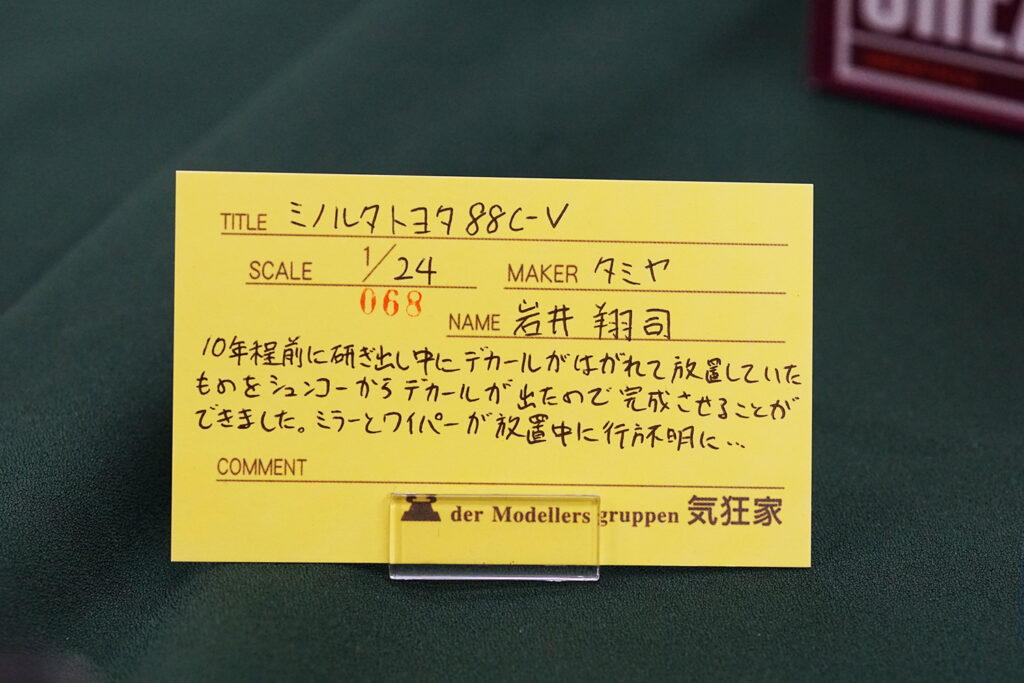 TITLE ミノルタトヨタ88C-V
SCALE 1/24 MAKER タミヤ
068
NAME 岩井 翔司
10年程前に研ぎ出し中にデカールがはがれて放置していた
ものをシュンコーからデカールが出たので完成させることが
できました。ミラーとワイパーが放置中に行方不明に…
COMMENT
der Modellers gruppen 気狂家